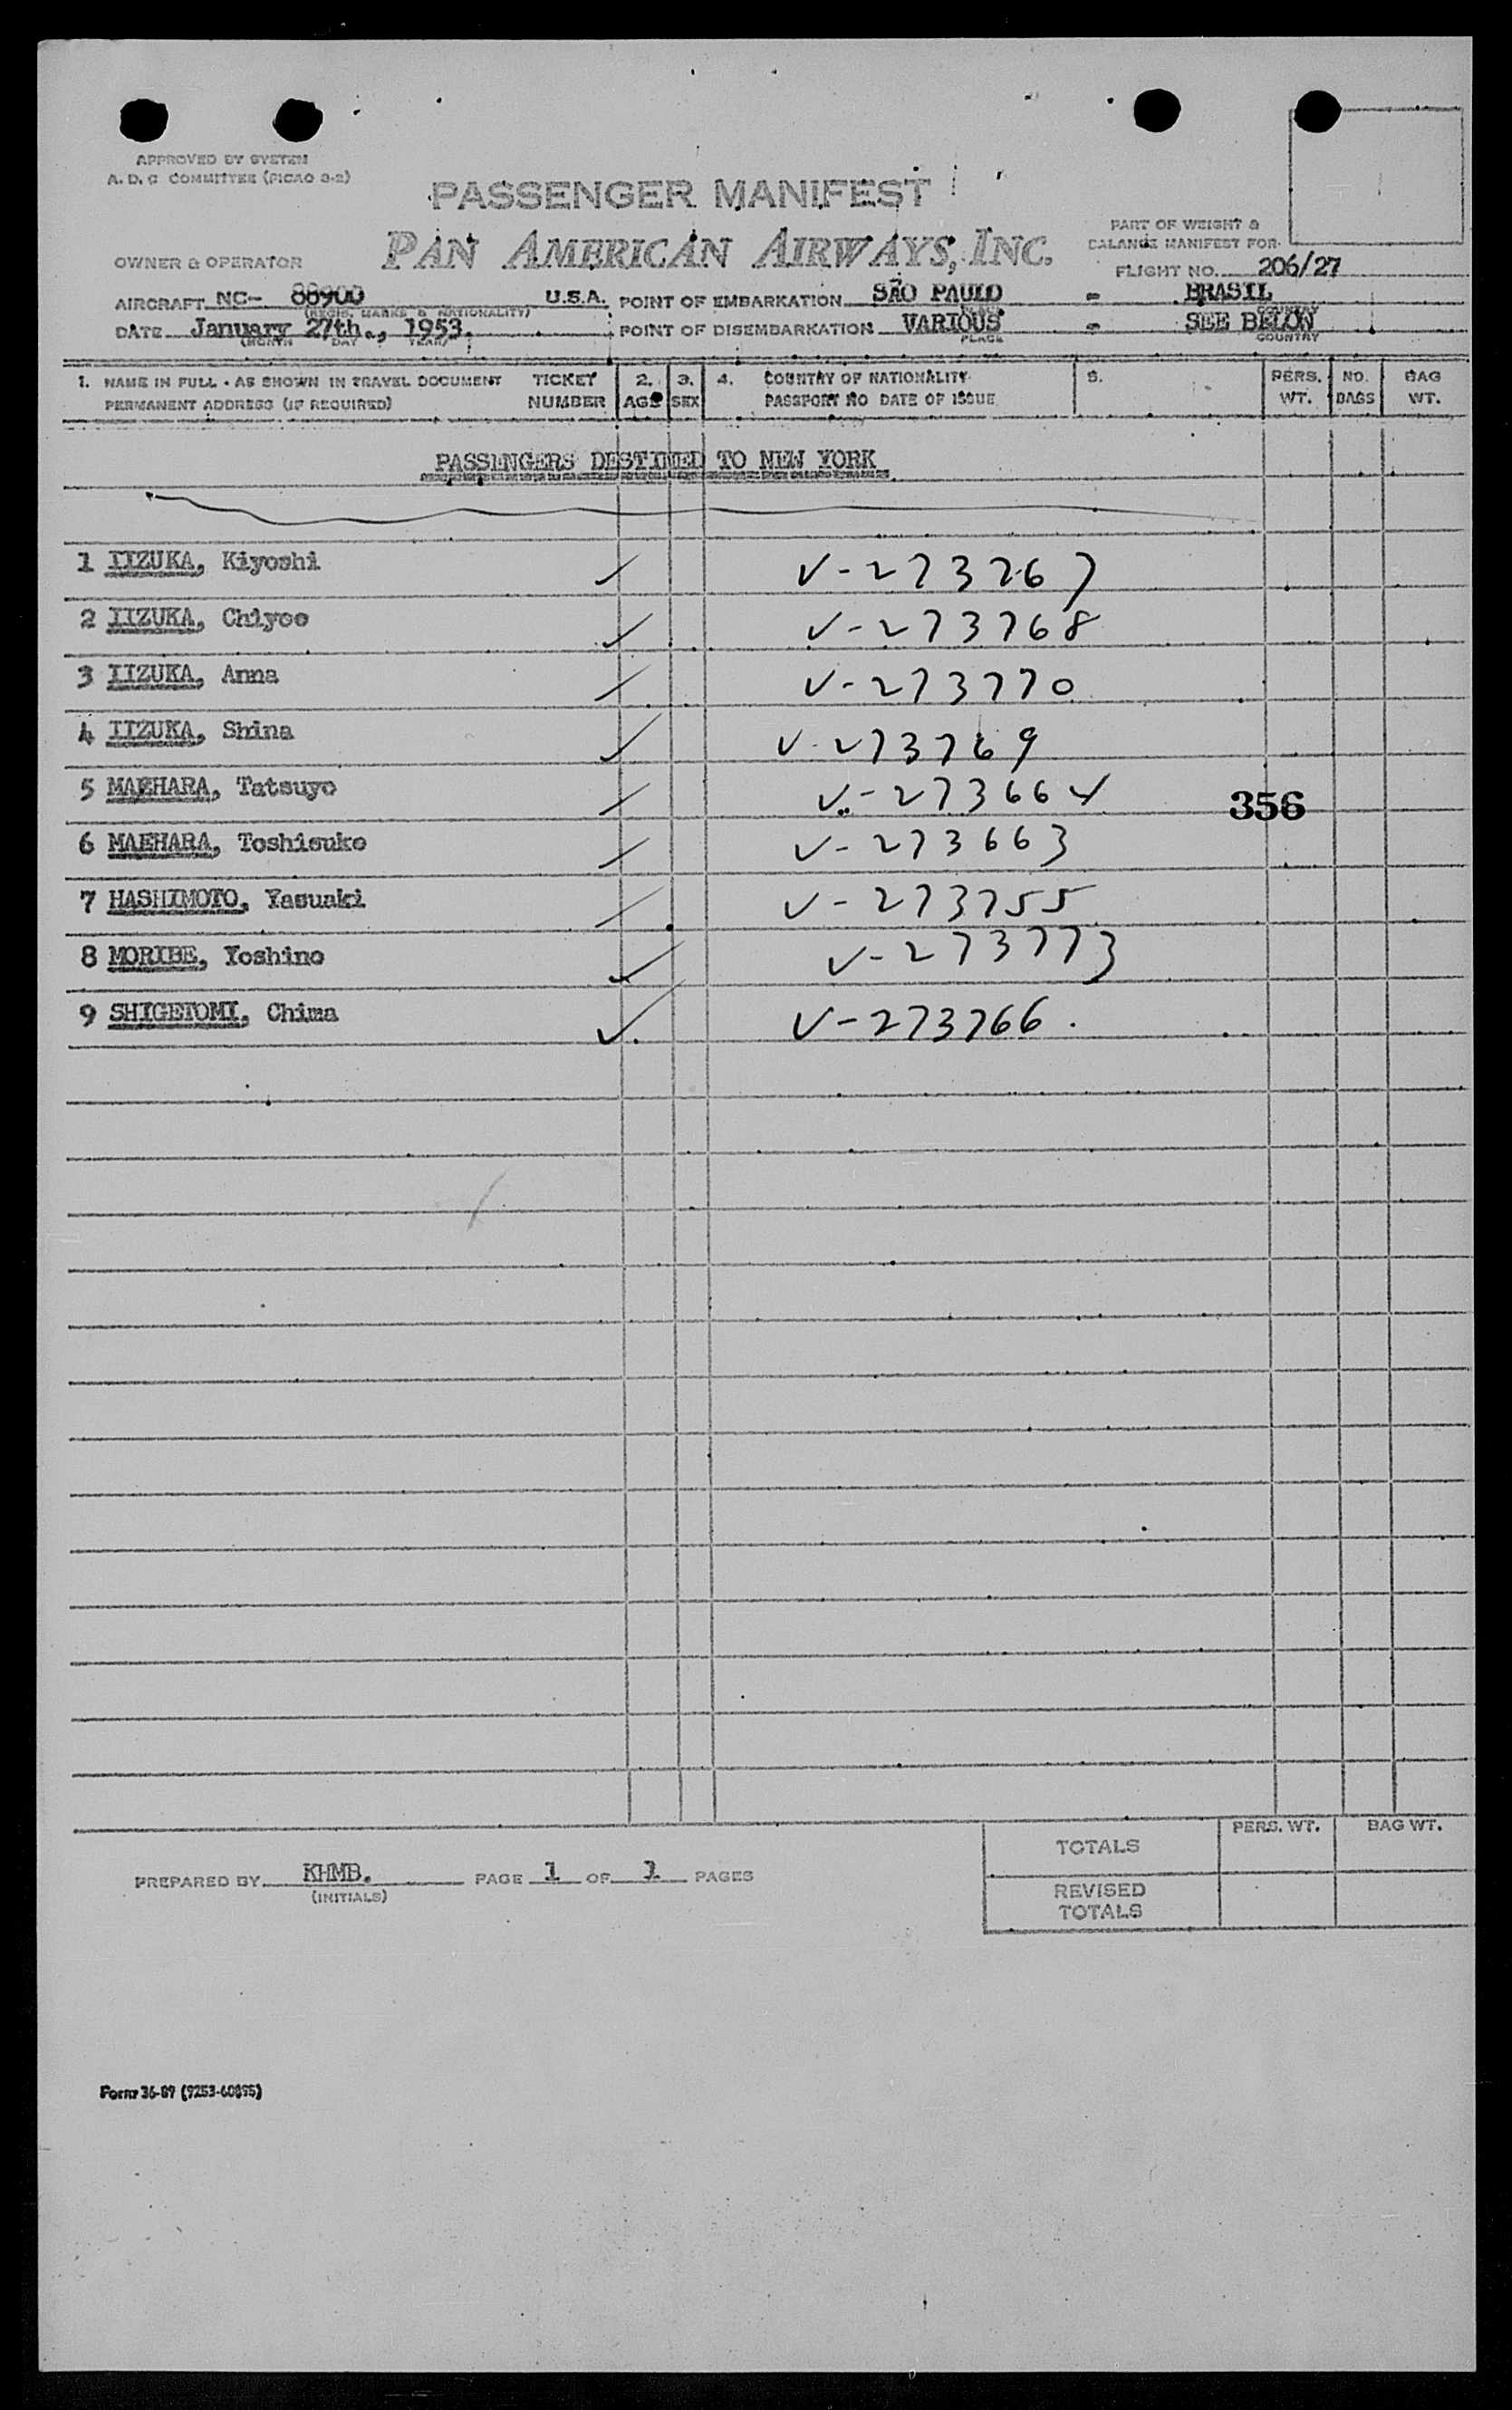 APPROVED BY SYSTEM
A. D. C COMMITTEE (PICAO 3-2)
PASSENGER MANIFEST
PAN AMERICAN AIRWAYS, INC.
PART OF WEIGHT &
BALANCE MANIFEST FOR
OWNER & OPERATOR
FLIGHT NO. 206/27
AIRCRAFT NC- 88900 U.S.A. POINT OF EMBARKATION SÃO PAULO - BRASIL
(REGIS. MARKS & NATIONALITY) PLACE COUNTRY
DATE January 27th., 1953. POINT OF DISEMBARKATION VARIOUS - SEE BELOW
(MONTH DAY YEAR) PLACE COUNTRY
1. NAME IN FULL - AS SHOWN IN TRAVEL DOCUMENT TICKET 2. 3. 4. COUNTRY OF NATIONALITY 5. PERS. NO. BAG
PERMANENT ADDRESS (IF REQUIRED) NUMBER AGE SEX PASSPORT NO DATE OF ISSUE WT. BAGS WT.
PASSENGERS DESTINED TO NEW YORK
1 IIZUKA, Kiyoshi ✓ V-273767
2 IIZUKA, Chiyoe ✓ V-273768
3 IIZUKA, Anna ✓ V-273770
4 IIZUKA, Shina ✓ V-273769
5 MAEHARA, Tatsuyo ✓ V-273664
356
6 MAEHARA, Toshisuke ✓ V-273663
7 HASHIMOTO, Yasuaki ✓ V-273755
8 MORIBE, Yoshino ✓ V-273773
9 SHIGETOMI, Chima ✓ V-273766.
PERS. WT. BAG WT.
TOTALS
PREPARED BY KHMB. PAGE 1 OF 1 PAGES
(INITIALS)
REVISED
TOTALS
Form 36-89 (9253-60895)